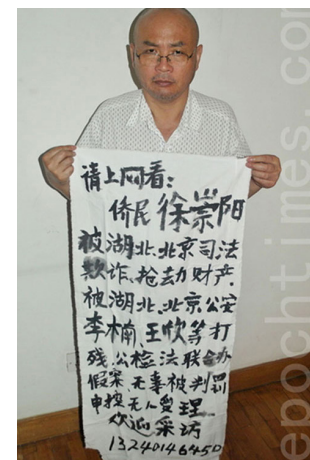 请上网看：
侨民徐崇阳
被湖北、北京司法
欺诈、抢劫财产.
被湖北、北京公安
李楠、王欣等打
残.公检法联合办
假案无辜被判罚
申控无人受理
欢迎采访
13240146450
epochtimes.com